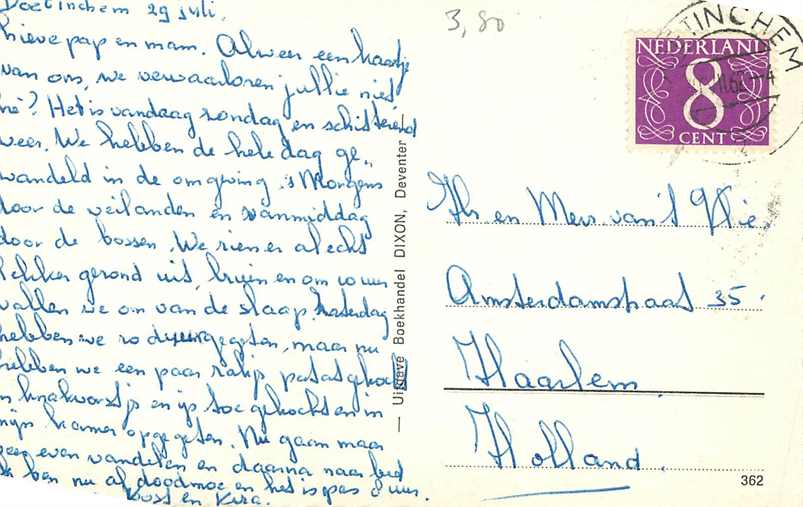 Doetinchem 29 juli.
Lieve pap en mam. Alweer een kaartje
van ons, we verwaarloren jullie niet
hè? Het is vandaag zondag en schitterend
weer. We hebben de hele dag ge„
wandeld in de omgeving. 's Morgens
door de weilanden en vanmiddag
door de bossen. We zien er al echt
lekker gezond uit, bruin en om 10 uur
vallen we om van de slaap. Zaterdag
hebben we zo duur gegeten, maar nu
hebben we een paar zakjes patat gehaald
en knakworstjes en ijs toe gekocht en in
mijn kamer opgegeten. Nu gaan maar
geen even wandelen en daarna naar bed
Ik ben nu al doodmoe en het is pas 8 uur.
en Vera.
— Uitgave Boekhandel DIXON, Deventer —
3,80
TINCHEM
NEDERLAND
8
CENT
Hr. en Mevr. van 't Vlie
Amsterdamstraat 35.
Haarlem.
Holland.
362